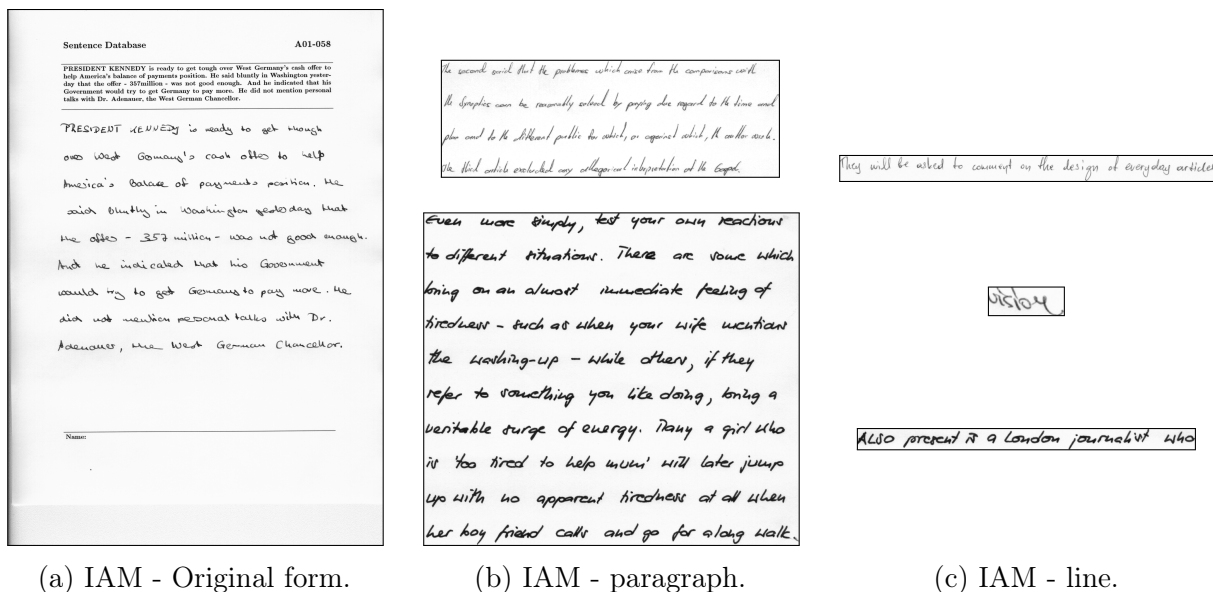 Sentence Database A01-058
PRESIDENT KENNEDY is ready to get tough over West Germany's cash offer to
help America's balance of payments position. He said bluntly in Washington yester-
day that the offer - 357million - was not good enough. And he indicated that his
Government would try to get Germany to pay more. He did not mention personal
talks with Dr. Adenauer, the West German Chancellor.
PRESIDENT KENNEDY is ready to get though
over West Germany's cash offer to help
America's Balance of payments position. He
said bluntly in Washington yesterday that
the offer - 357 million - was not good enough.
And he indicated that his Government
would try to get Germany to pay more. He
did not mention personal talks with Dr.
Adenauer, the West German Chancellor.
Name:
(a) IAM - Original form.
The second said that the problems which arise from the comparisons with
the Synoptics can be reasonably solved by paying due regard to the time and
plan and to the different public for which, or against which, the author wrote.
The third article excluded any allegorical interpretation of the Gospel.
Even more simply, test your own reactions
to different situations. There are some which
bring on an almost immediate feeling of
tiredness - such as when your wife mentions
the washing-up - while others, if they
refer to something you like doing, bring a
veritable surge of energy. Many a girl who
is 'too tired to help mum' will later jump
up with no apparent tiredness at all when
her boy friend calls and go for a long walk.
(b) IAM - paragraph.
They will be asked to comment on the design of everyday articles
Also present is a London journalist who
(c) IAM - line.